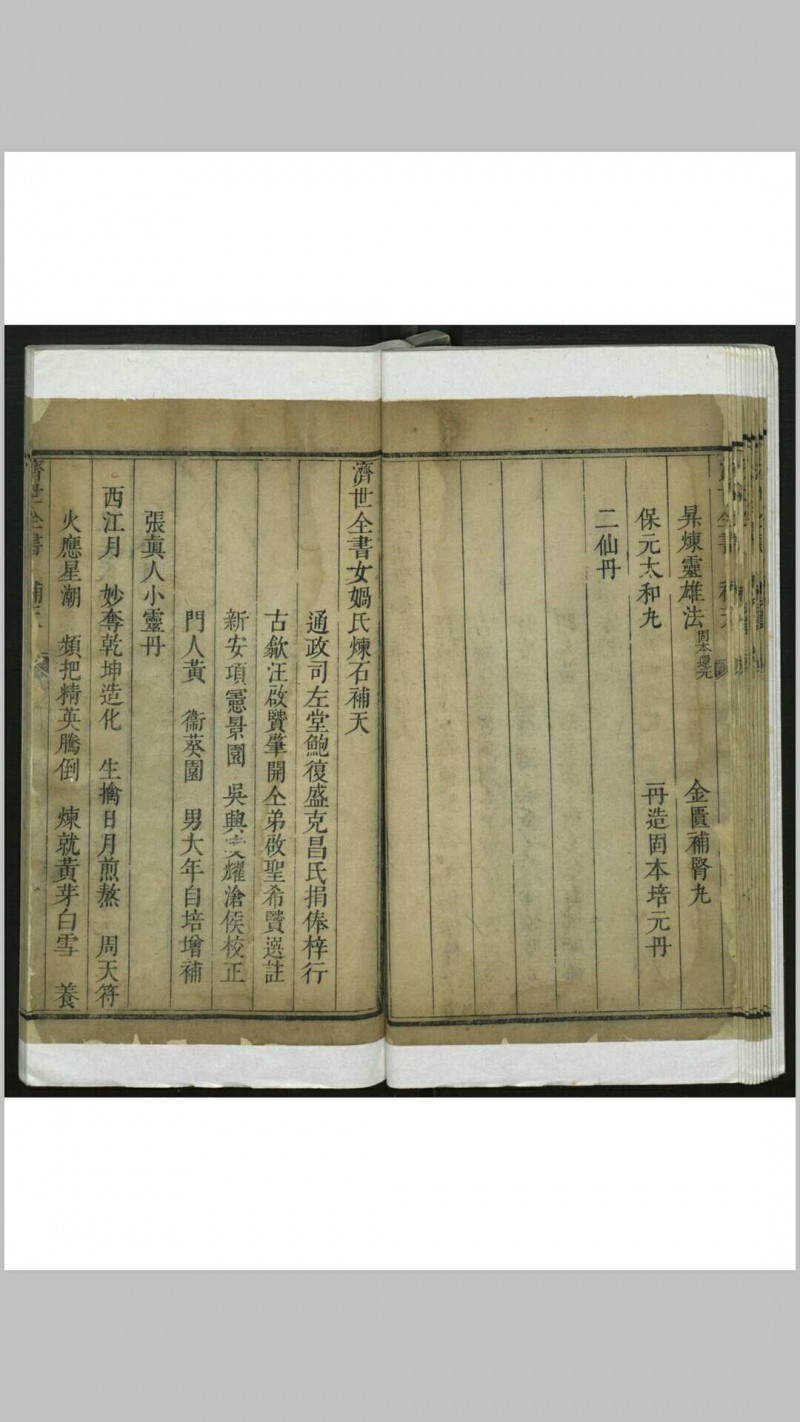 昇煉靈雄法 固本還元 金匱補腎丸
保元太和丸 再造固本培元丹
二仙丹
濟世全書女媧氏煉石補天
通政司左堂鮑復盛克昌氏捐俸梓行
古歙汪啟贒肇開仝弟啟聖希贒選註
新安項憲景園 吳興 耀滄侯校正
門人黃 衞葵園 男大年自培增補
張眞人小靈丹
西江月 妙奪乾坤造化 生擒日月煎熬 周天符
火應星潮 類把精英騰倒 煉就黃芽白雪 養
濟世全書